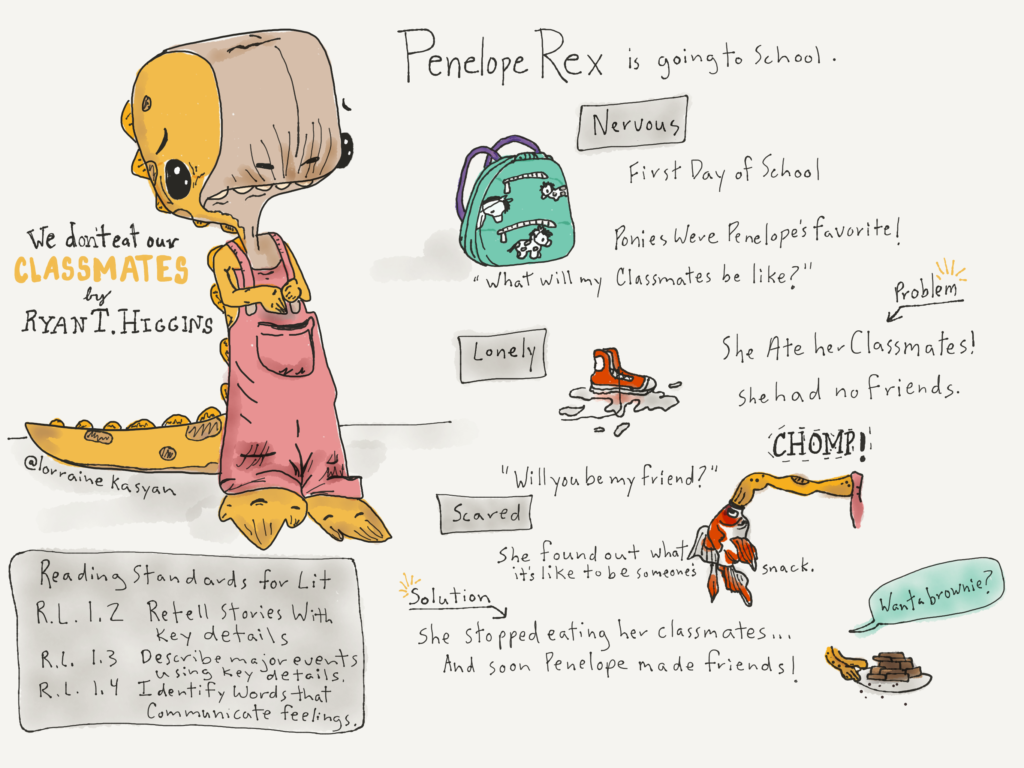 Penelope Rex is going to School.
Nervous
First Day of School
Ponies Were Penelope's favorite!
"What will my Classmates be like?"
We don't eat our
CLASSMATES
by
RYAN T. HIGGINS
Problem
She Ate her Classmates!
she had no friends.
Lonely
CHOMP!
"Will you be my friend?"
Scared
She found out what
it's like to be someone's snack.
Solution
She stopped eating her classmates...
And soon Penelope made friends!
Want a brownie?
@lorraine Kasyan
Reading Standards for Lit
R.L. 1.2 Retell Stories With
key details
R.L. 1.3 Describe major events
using key details.
R.L. 1.4 Identify Words that
Communicate feelings.